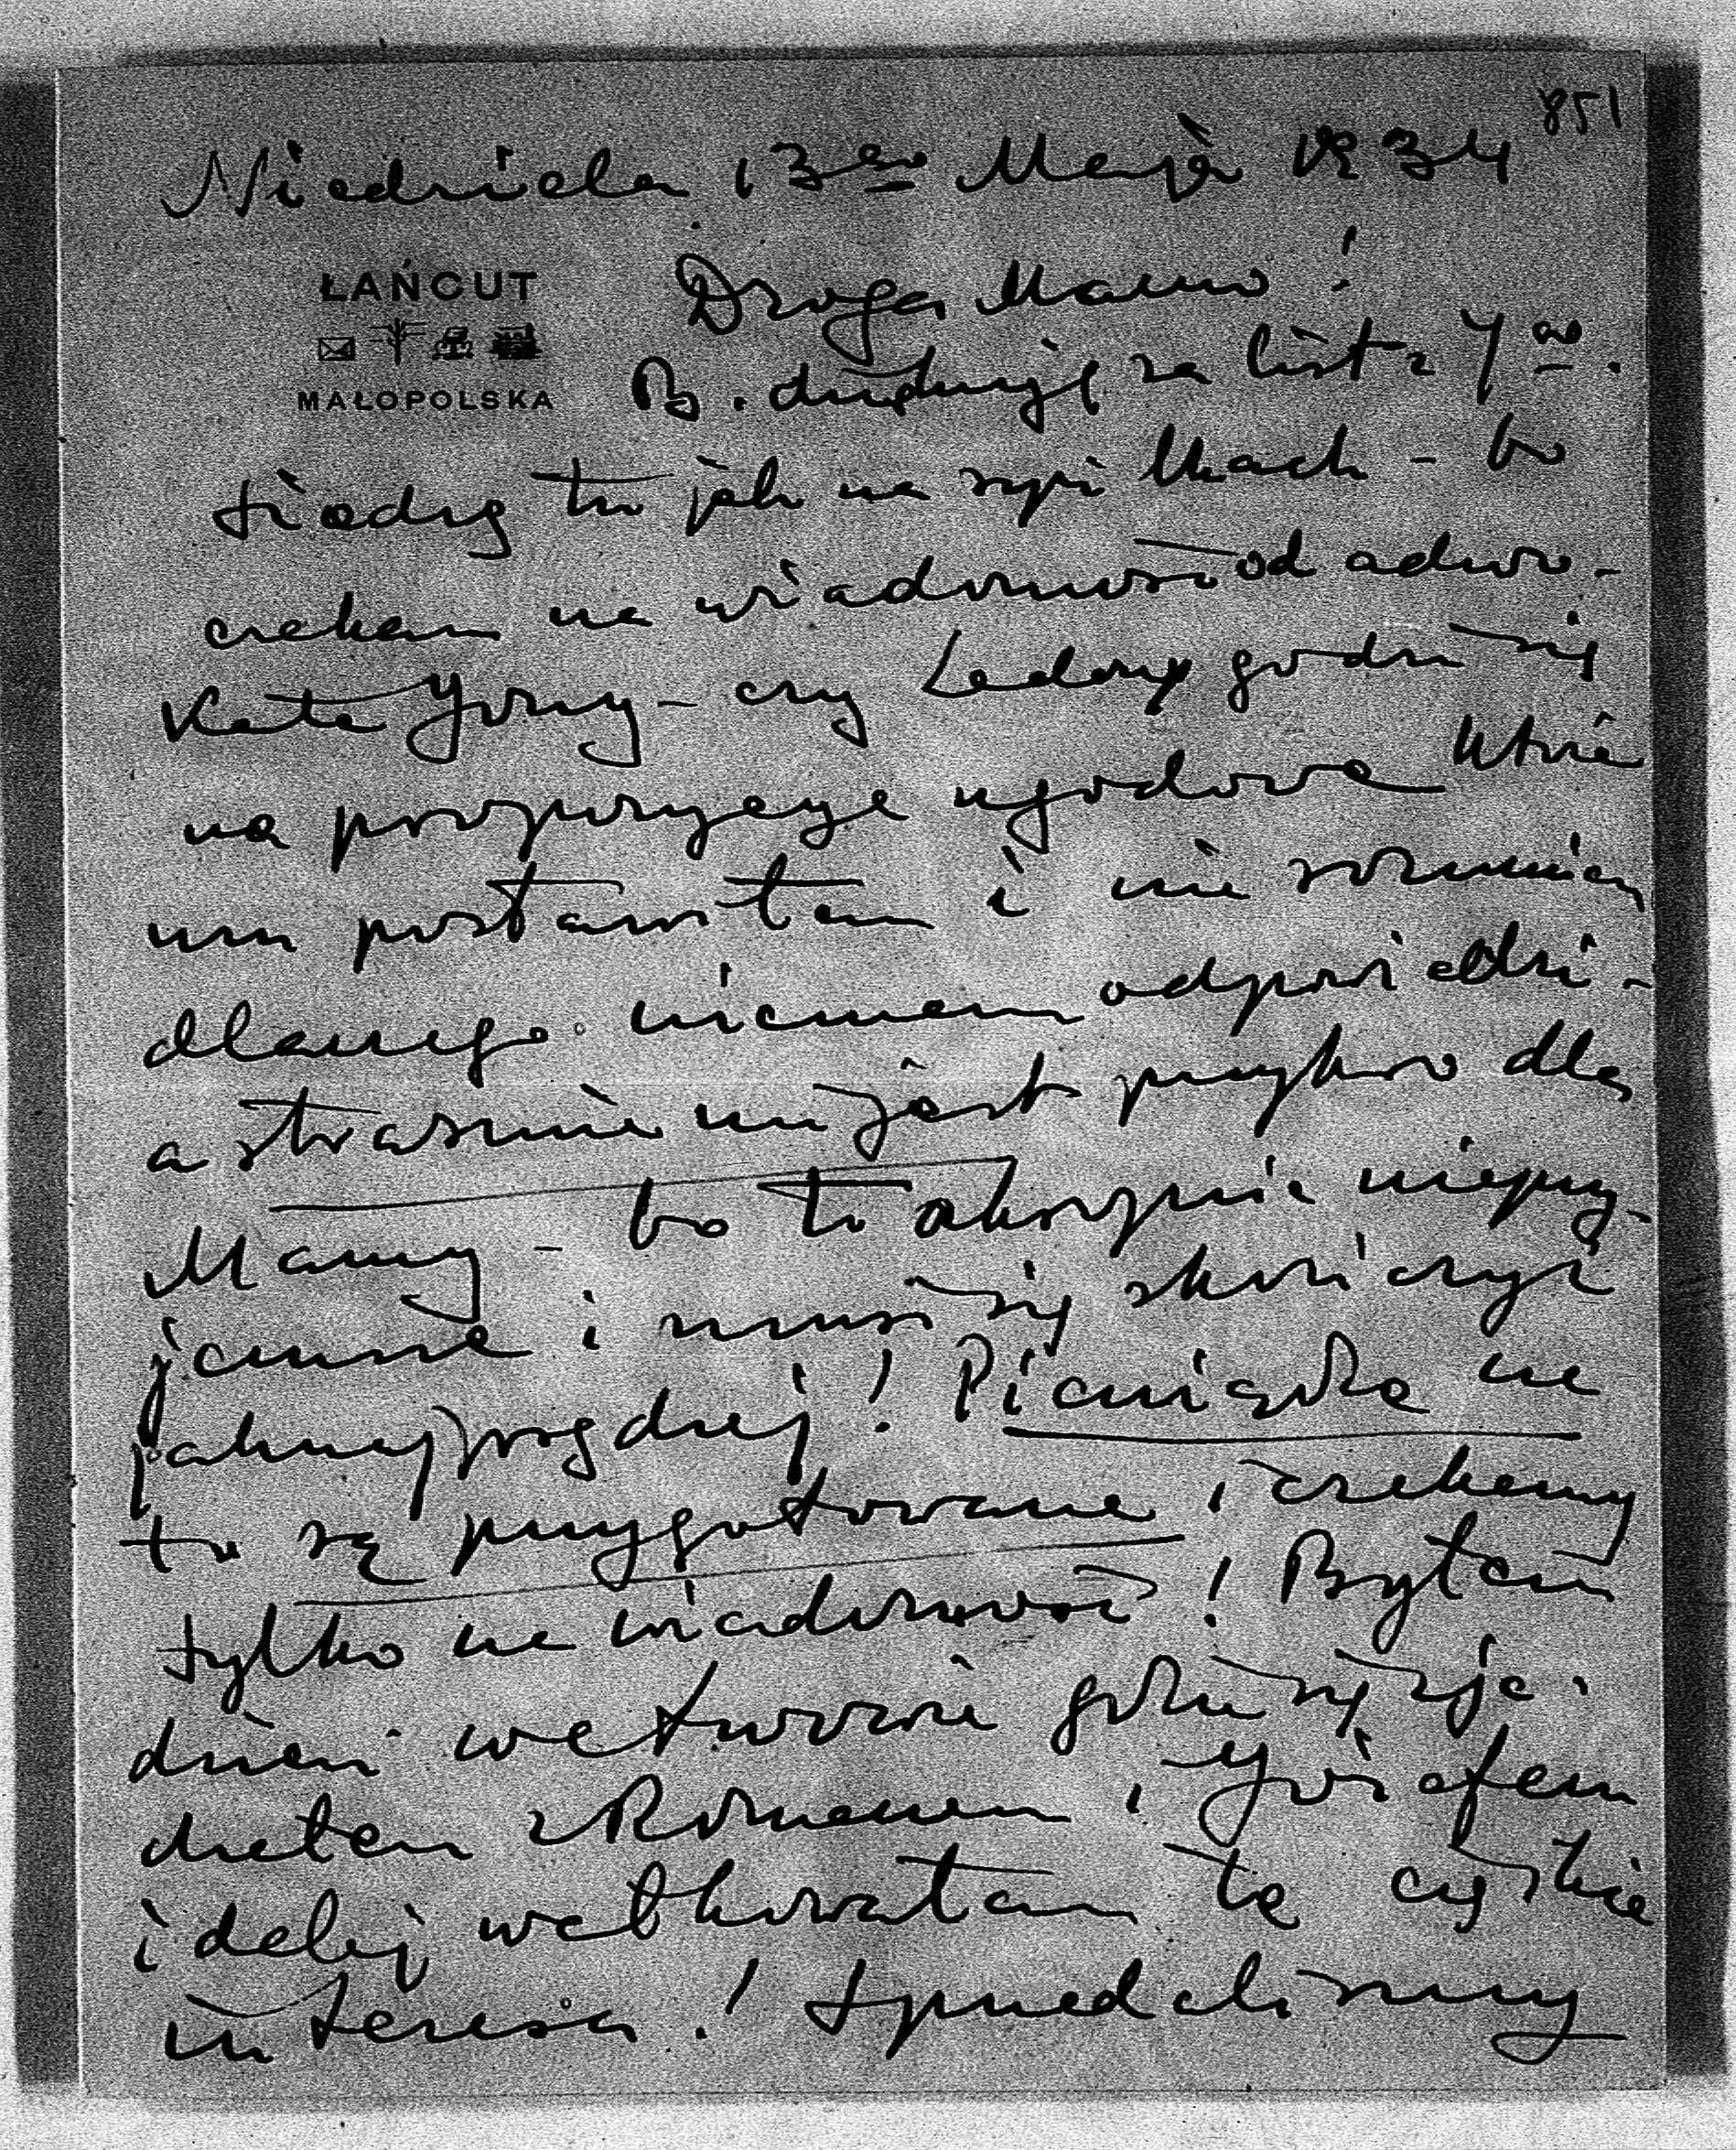 851
Niedziela 13go Maja 1934
ŁAŃCUT
MAŁOPOLSKA
Droga Mamo!
B. dziękuję za list z 7go.
Siedzę tu jak na szpilkach - bo
czekam na wiadomość od adwo-
kata - czy godzi się
na propozycye ugodowe które
mu postawiłam i nie rozumiem
dlaczego niemam odpowiedzi -
a strasznie mi jest przykro dla
Mamy - bo to okropnie nieprzy-
jemne i musi się skończyć
jaknajprędzej! Pieniądze na
to są przygotowane i czekamy
tylko na wiadomość! Byłam
dzień we Lwowie gdzie się zje-
chałam z Romanem i Józefem
i dalej wałkowałam te ciężkie
interesa! Spredaliśmy